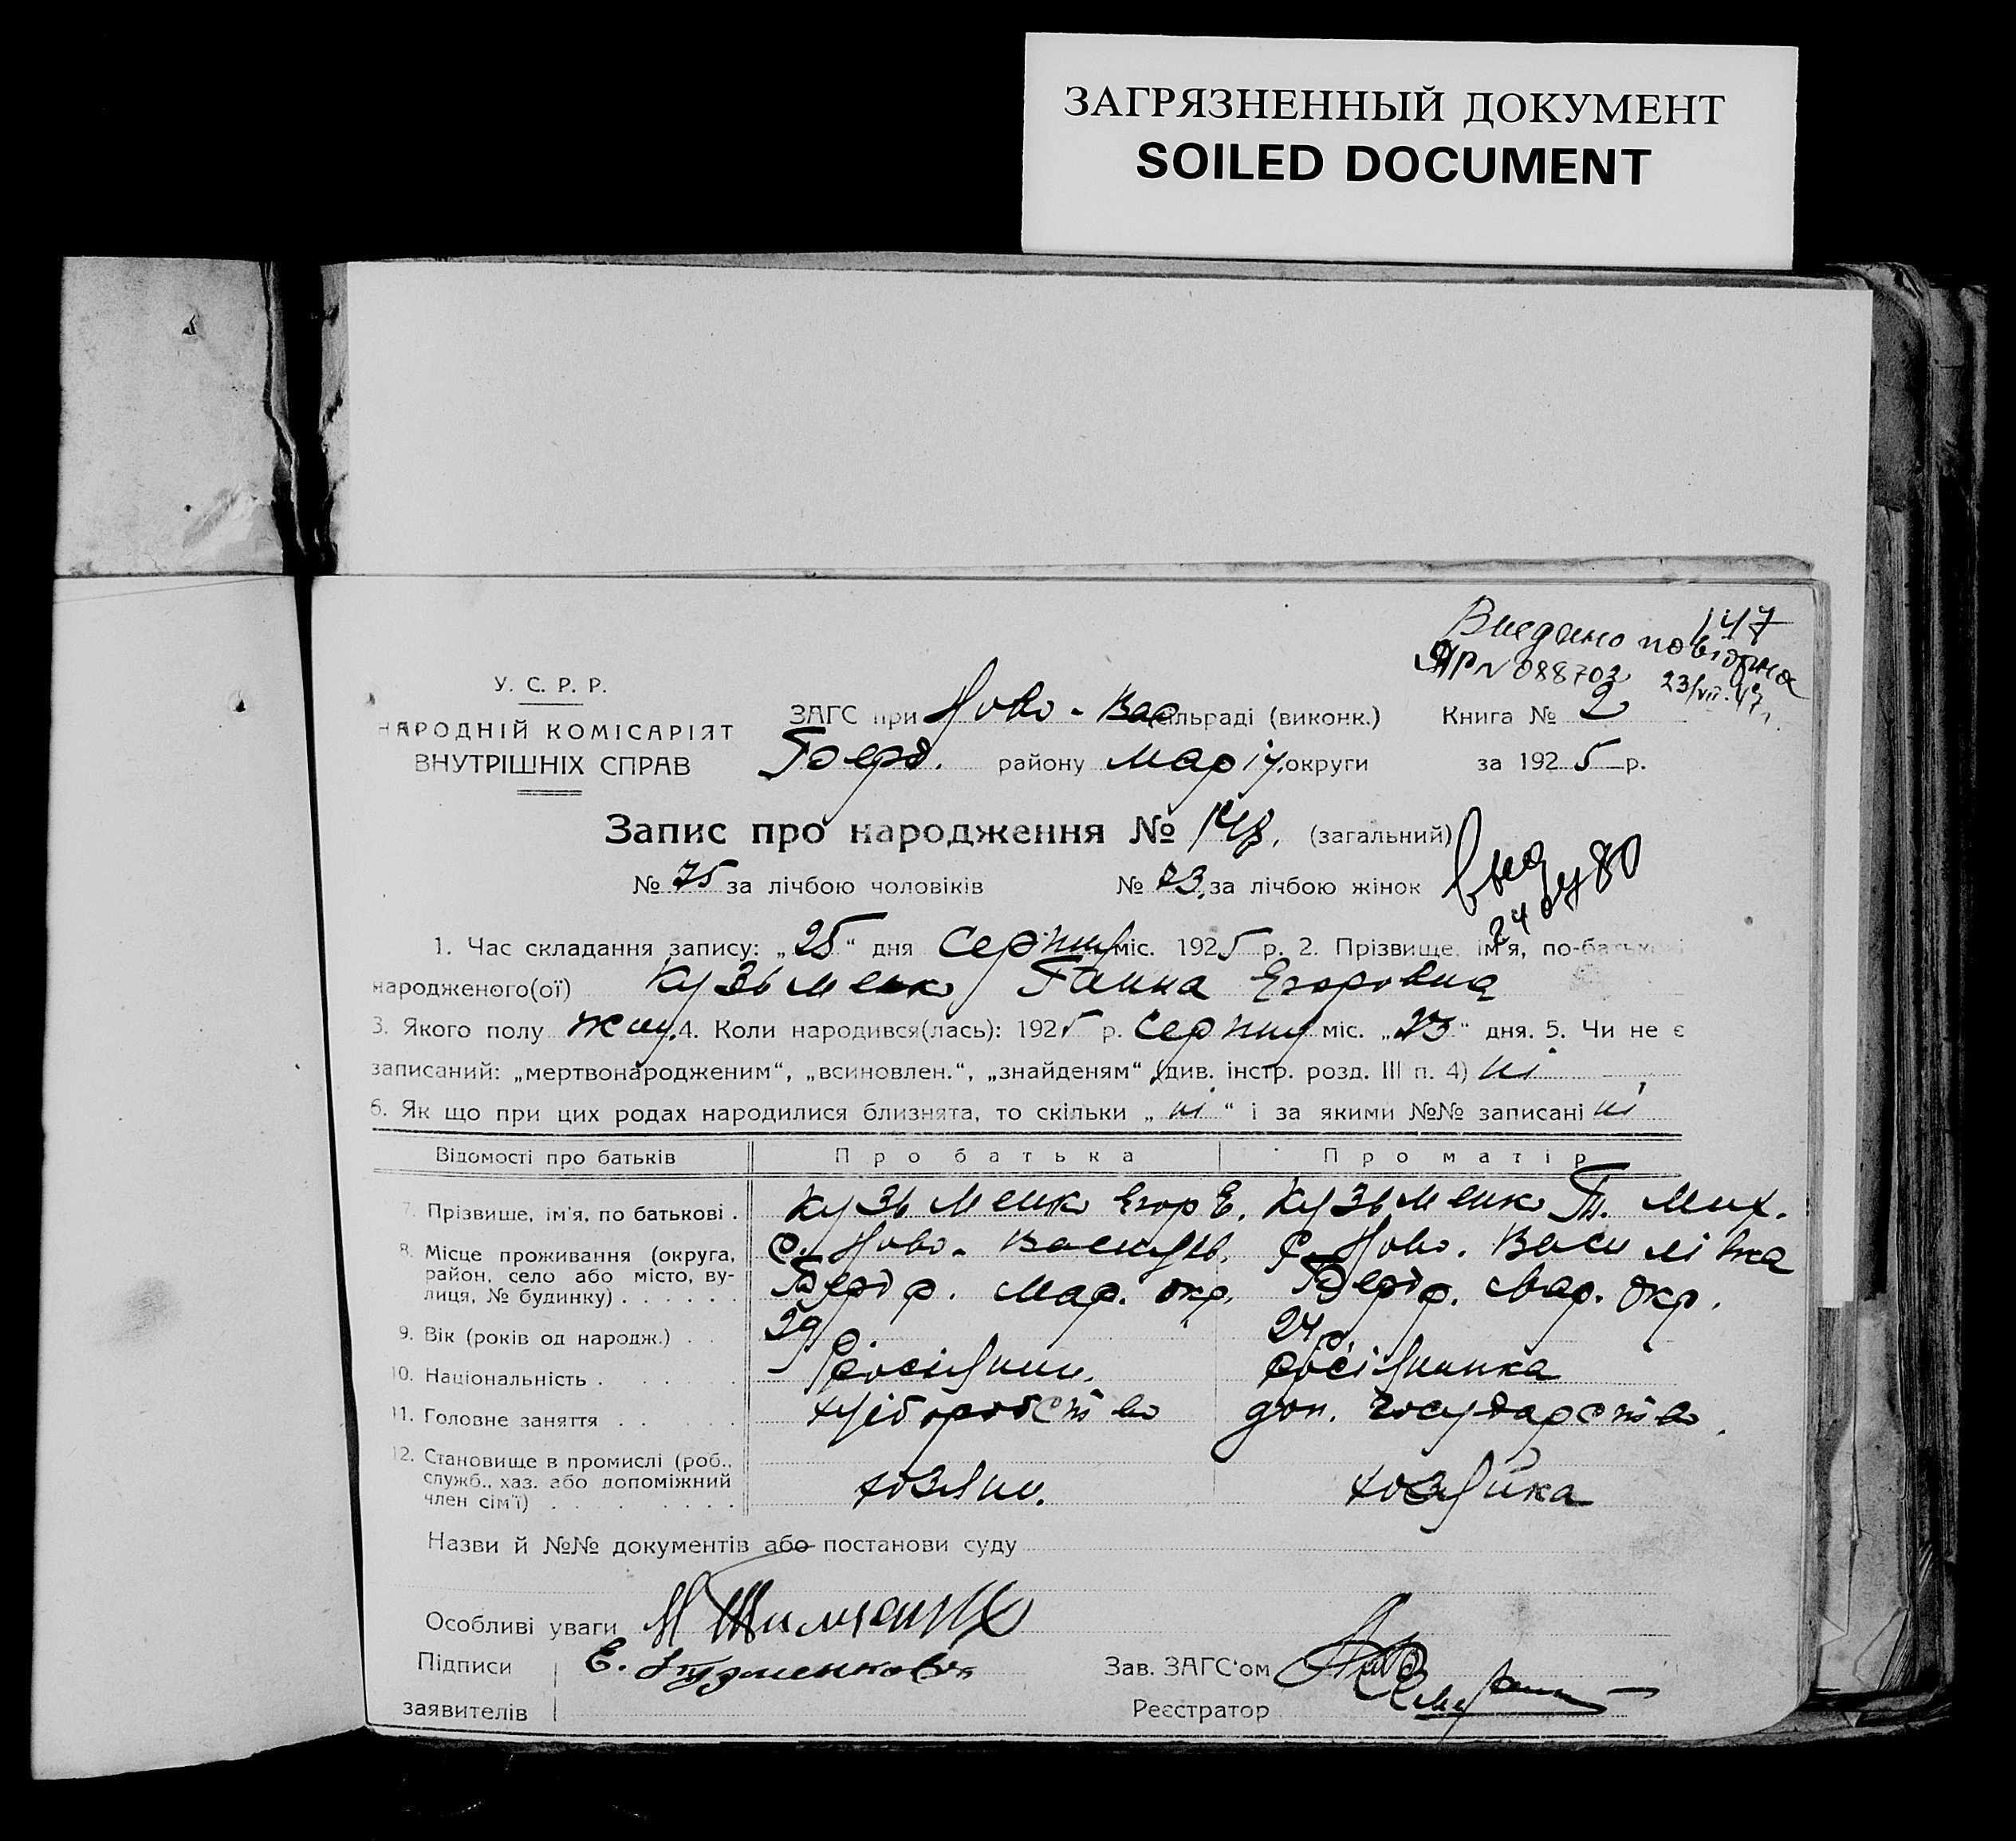 ЗАГРЯЗНЕННЫЙ ДОКУМЕНТ
SOILED DOCUMENT
147
Видано повторно
ЯР N 088703 23/VII-47 г.
У. С. Р. Р.
НАРОДНІЙ КОМІСАРІЯТ
ВНУТРІШНІХ СПРАВ
ЗАГС при Ново-Вас сільраді (виконк.) Книга № 2
Берд. району Маріу. округи за 1925 р.
Запис про народження № 148. (загальний)
№ 75 за лічбою чоловіків № 73. за лічбою жінок
1. Час складання запису: „25“ дня серпня міс. 1925 р. 2. Прізвище, ім'я, по-батькові
народженого(ої) Кузьменко Ганна Егоровна
3. Якого полу жін. 4. Коли народився(лась): 1925 р. серпня міс. „23“ дня. 5. Чи не є
записаний: „мертвонародженим“, „всиновлен.“, „знайденям“ (див. інстр. розд. III п. 4) ні
6. Як що при цих родах народилися близнята, то скільки „ні“ і за якими №№ записані ні
Відомості про батьків Про батька Про матір
7. Прізвище, ім'я, по батькові . Кузьменко Егор Е. Кузьменко Т. Мих.
8. Місце проживання (округа, район, село або місто, вулиця, № будинку) с. Ново-Васильв. Бердр. Мар. окр. с. Ново. Василівка Бердр. Мар. окр.
9. Вік (років од народж.) 29 р. 24 р.
10. Національність . росіянин. росіянка
11. Головне заняття . хліборобство дом. государство.
12. Становище в промислі (роб., служб., хаз. або допоміжний член сім'ї) хозяин. хозяйка
Назви й №№ документів або постанови суду
Особливі уваги
Підписи
заявителів
Зав. ЗАГС'ом
Реєстратор